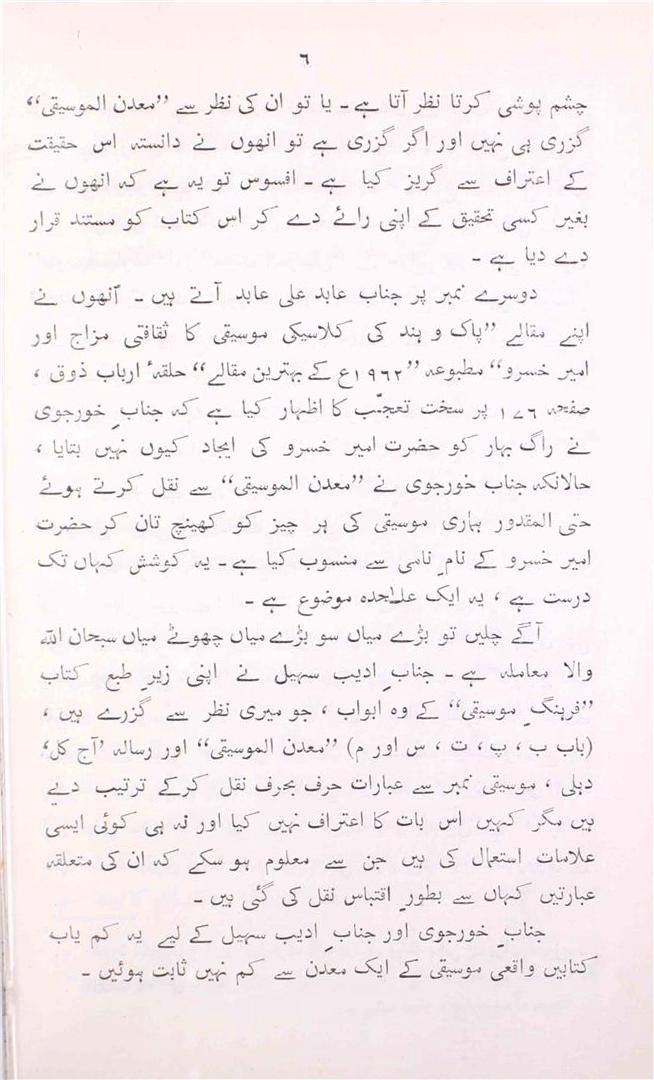 ٦
چشم پوشی کرتا نظر آتا ہے ۔ یا تو ان کی نظر سے ”معدن الموسیقی“
گزری ہی نہیں اور اگر گزری ہے تو انھوں نے دانستہ اس حقیقت
کے اعتراف سے گریز کیا ہے ۔ افسوس تو یہ ہے کہ انھوں نے
بغیر کسی تحقیق کے اپنی رائے دے کر اس کتاب کو مستند قرار
دے دیا ہے ۔
دوسرے نمبر پر جناب عابد علی عابد آتے ہیں ۔ اُنھوں نے
اپنے مقالے ”پاک و ہند کی کلاسیکی موسیقی کا ثقافتی مزاج اور
امیر خسرو“ مطبوعہ ”۱۹۶۲ع کے بہترین مقالے“ حلقۂ ارباب ذوق ،
صفحہ ۱۷۶ پر سخت تعجّب کا اظہار کیا ہے کہ جنابِ خورجوی
نے راگ بہار کو حضرت امیر خسرو کی ایجاد کیوں نہیں بتایا ،
حالانکہ جناب خورجوی نے ”معدن الموسیقی“ سے نقل کرتے ہوئے
حتی المقدور ہماری موسیقی کی ہر چیز کو کھینچ تان کر حضرت
امیر خسرو کے نامِ نامی سے منسوب کیا ہے ۔ یہ کوشش کہاں تک
درست ہے ، یہ ایک علٰحدہ موضوع ہے ۔
آگے چلیں تو بڑے میاں سو بڑے میاں چھوٹے میاں سبحان اللہ
والا معاملہ ہے ۔ جنابِ ادیب سہیل نے اپنی زیرِ طبع کتاب
”فرہنگِ موسیقی“ کے وہ ابواب ، جو میری نظر سے گزرے ہیں ،
(باب ب ، پ ، ت ، س اور م) ”معدن الموسیقی“ اور رسالہ ’آج کل‘
دہلی ، موسیقی نمبر سے عبارات حرف بحرف نقل کرکے ترتیب دیے
ہیں مگر کہیں اس بات کا اعتراف نہیں کیا اور نہ ہی کوئی ایسی
علامات استعمال کی ہیں جن سے معلوم ہو سکے کہ ان کی متعلقہ
عبارتیں کہاں سے بطورِ اقتباس نقل کی گئی ہیں ۔
جنابِ خورجوی اور جنابِ ادیب سہیل کے لیے یہ کم یاب
کتابیں واقعی موسیقی کے ایک معدن سے کم نہیں ثابت ہوئیں ۔